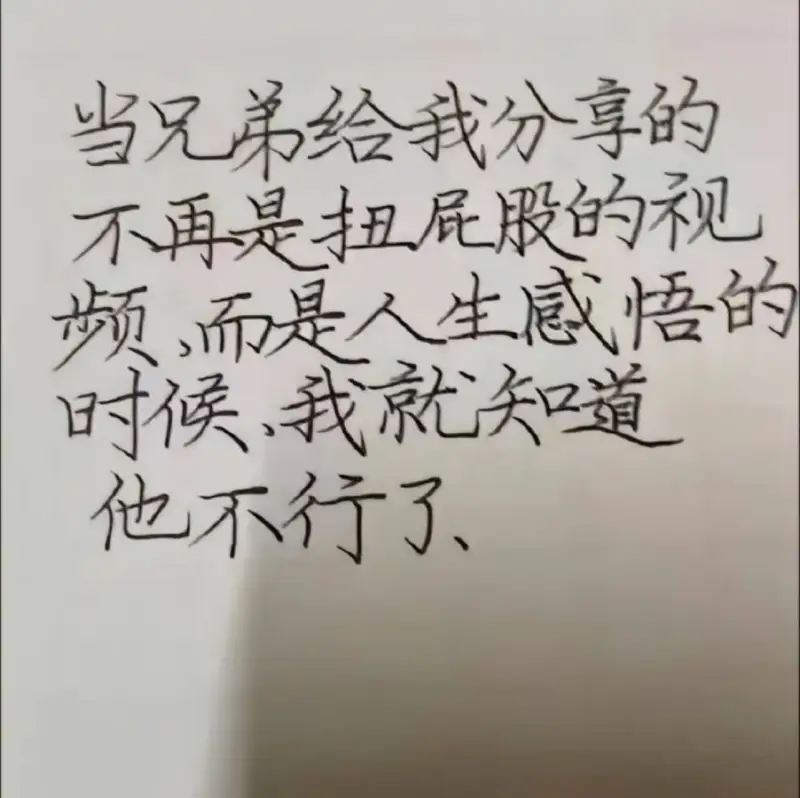 当兄弟给我分享的
不再是扭屁股的视
频、而是人生感悟的
时候、我就知道
他不行了、